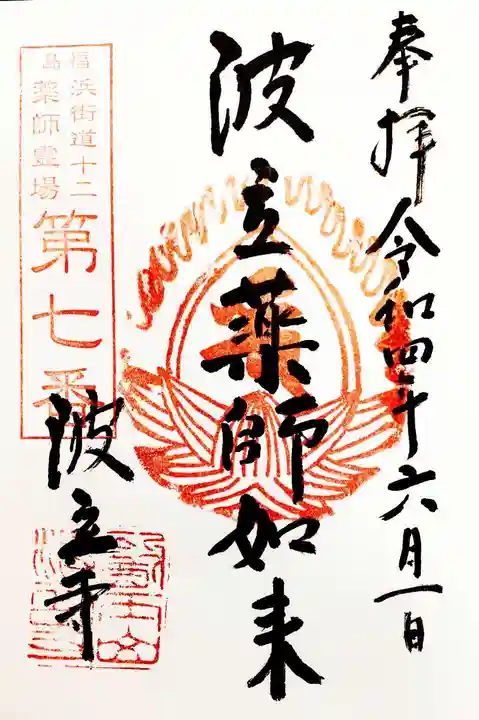 奉拝 令和四年六月一日
波立薬師如来
福島 浜街道十二薬師霊場 第七番
波立寺